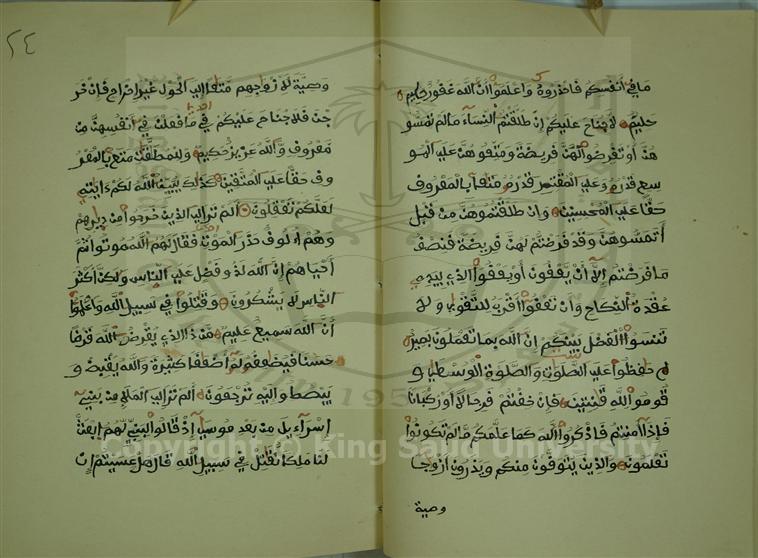 ما في أنفسكم فاحذروه واعلموا أن الله غفور حليم
حليم لا جناح عليكم إن طلقتم النساء ما لم تمسو
هن أو تفرضوا لهن فريضة ومتعوهن على المو
سع قدره وعلى المقتر قدره متاعا بالمعروف
حقا على المحسنين وإن طلقتموهن من قبل
أن تمسوهن وقد فرضتم لهن فريضة فنصف
ما فرضتم إلا أن يعفون أو يعفوا الذي بيده
عقدة النكاح وأن تعفوا أقرب للتقوى ولا
تنسوا الفضل بينكم إن الله بما تعملون بصير
حفظوا على الصلوت والصلوة الوسطى و
قوموا لله قنتين فإن خفتم فرجالا أو ركبانا
فإذا أمنتم فاذكروا الله كما علمكم ما لم تكونوا
تعلمون والذين يتوفون منكم ويذرون أزوجا
وصية
٢٤
وصية لأزواجهم متاعا إلى الحول غير إخراج فإن خر
جن فلا جناح عليكم في ما فعلن في أنفسهن من
معروف والله عزيز حكيم وللمطلقت متع بالمعر
وف حقا على المتقين كذلك يبين الله لكم ءايته
لعلكم تعقلون ألم تر إلى الذين خرجوا من ديرهم
وهم ألوف حذر الموت فقال لهم الله موتوا ثم
أحياهم إن الله لذو فضل على الناس ولكن أكثر
الناس لا يشكرون وقتلوا في سبيل الله واعلموا
أن الله سميع عليم من ذا الذي يقرض الله قرضا
حسنا فيضعفه له أضعفا كثيرة والله يقبض و
يبصط وإليه ترجعون ألم تر إلى الملإ من بني
إسرآءيل من بعد موسى إذ قالوا لنبي لهم ابعث
لنا ملكا نقتل في سبيل الله قال هل عسيتم إن
Copyright © King Saud University
1957